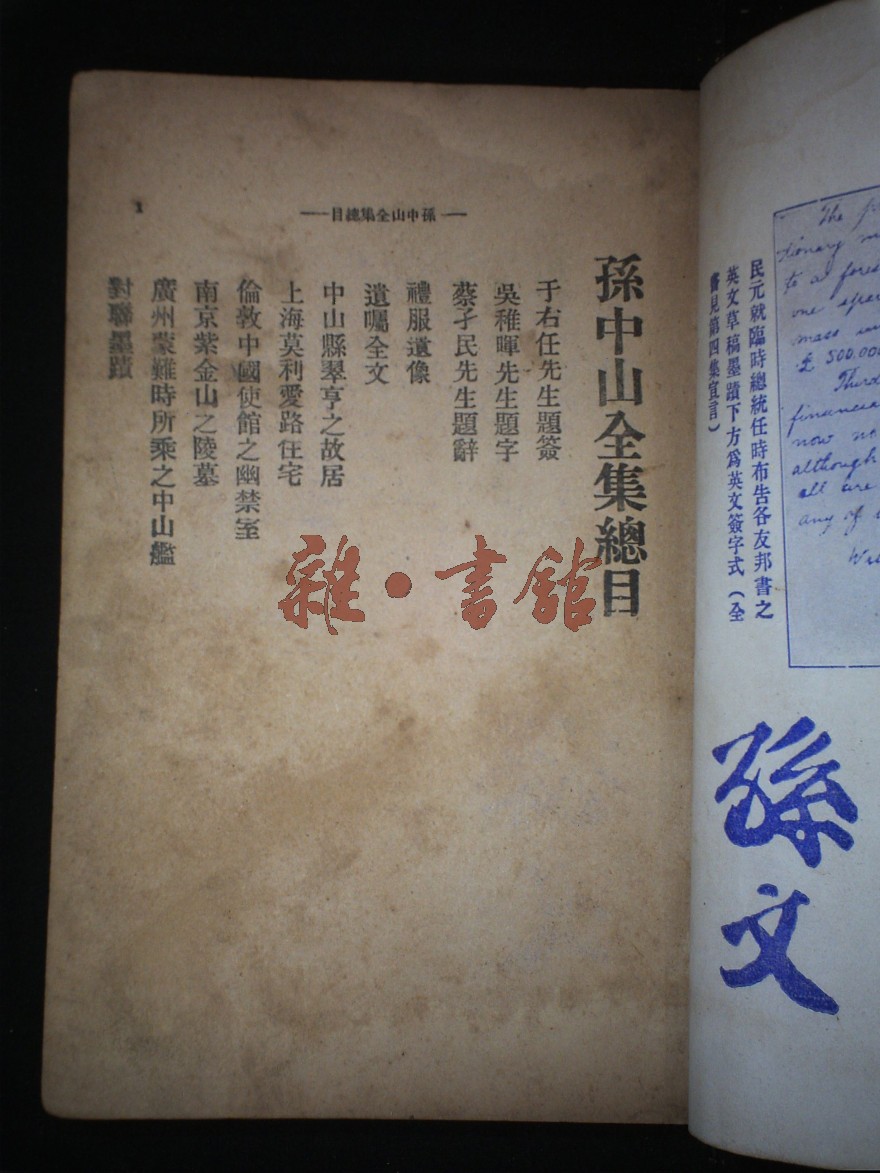 孫中山全集總目
1
孫中山全集總目
于右任先生題簽
吳稚暉先生題字
蔡孑民先生題辭
禮服遺像
遺囑全文
中山縣翠亨之故居
上海莫利愛路住宅
倫敦中國使館之幽禁室
南京紫金山之陵墓
廣州蒙難時所乘之中山艦
對聯墨蹟
雜·書館
The
tionary
to a
one
mass
£ 500.000
Third
financial
now
although
all are
any of
民元就臨時總統任時布告各友邦書之
英文草稿墨蹟下方爲英文簽字式（全
書見第四集宣言）
孫文